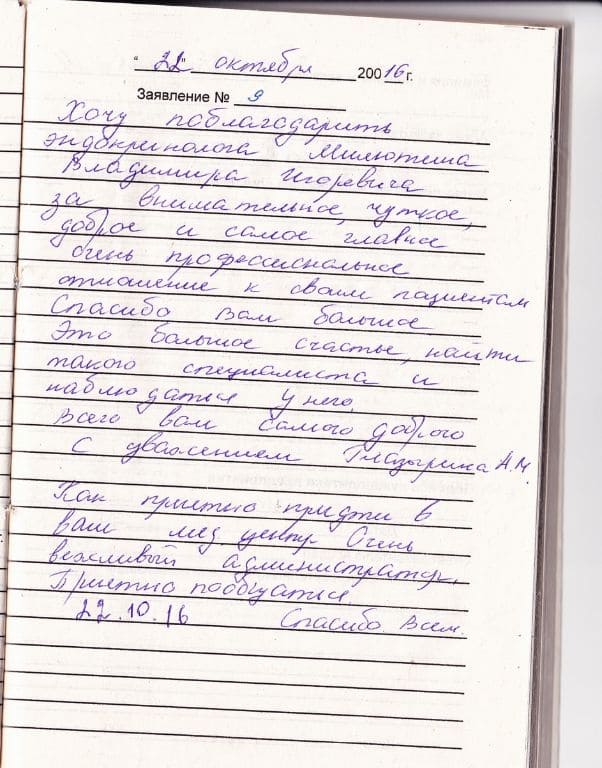 "22" октября 20016 г.
Заявление № 9
Хочу поблагодарить
эндокринолога Милютина
Владимира Игоревича
за внимательное, чуткое,
доброе и самое главное
очень профессиональное
отношение к своим пациентам
Спасибо Вам большое
Это большое счастье, найти
такого специалиста и
наблюдаться у него.
Всего вам самого доброго
С уважением Глазырина А.М.
Как приятно придти в
ваш мед. центр Очень
вежливый администратор.
Приятно пообщаться.
22.10.16 Спасибо Всем.